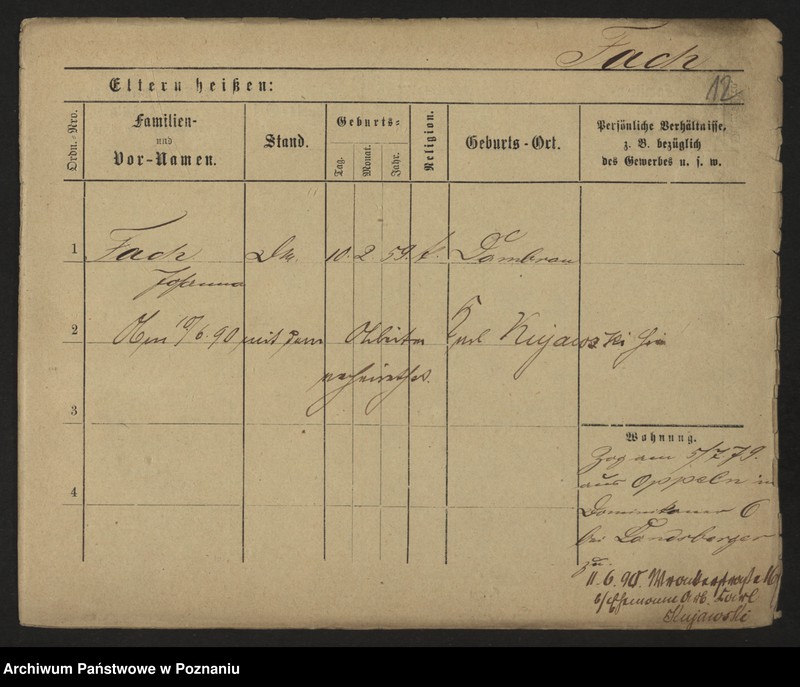 Fach
12
Eltern heißen:
Ordn.-Nro.
Familien-
und
Vor-Namen.
Stand.
Geburts-
Tag.
Monat.
Jahr.
Religion.
Geburts-Ort.
Persönliche Verhältnisse,
z. B. bezüglich
des Gewerbes u. s. w.
1 Fach 10. 2 59. k. Dambrau
Johanna
2 Am 10/6.90 mit dem Arbeiter Karl Kujawski hier
verheirathet.
3
Wohnung.
Zog am 5/7.79.
aus Oppeln in
4
Dominikaner 6
bei Landsberger
zu.
11.6.90. 16
b/Ehemanne Arb. Karl
Kujawski
Archiwum Państwowe w Poznaniu